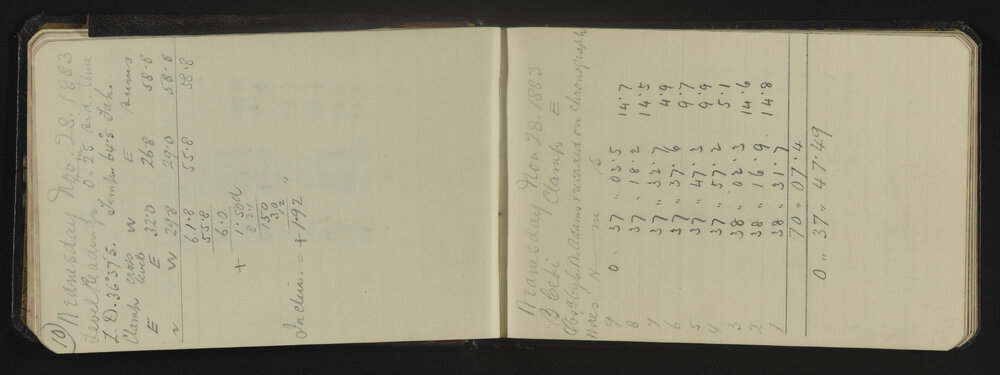 10) Wednesday Nov. 28. 1883
Level Reading 0h 25m sid time
Z. D. 36°37'5. Temp. 64°.5 Fah.
Clamp cross levels W E Sums
E E 32.0 26.8 58.8
W W 29.8 29.0 58.8
61.8 55.8 58.8
55.8
6.0
+ 1.50d
150
Inclin. = + 1.92"
Wednesday Nov 28. 1883
β Ceti Clamp E
Obsd by C. N. Adams & recorded on chronograph
Wires H m S
9 0. 37 " 03.5 14.7
8 37 " 18.2 14.5
7 37 " 32.7 4.9
6 37 " 37.6 9.7
5 37 " 47.3 9.9
4 37 " 57.2 5.1
3 38 " 02.3 14.6
2 38 " 16.9 14.8
1 38 " 31.7
70 " 07.4
0 " 37 " 47.49